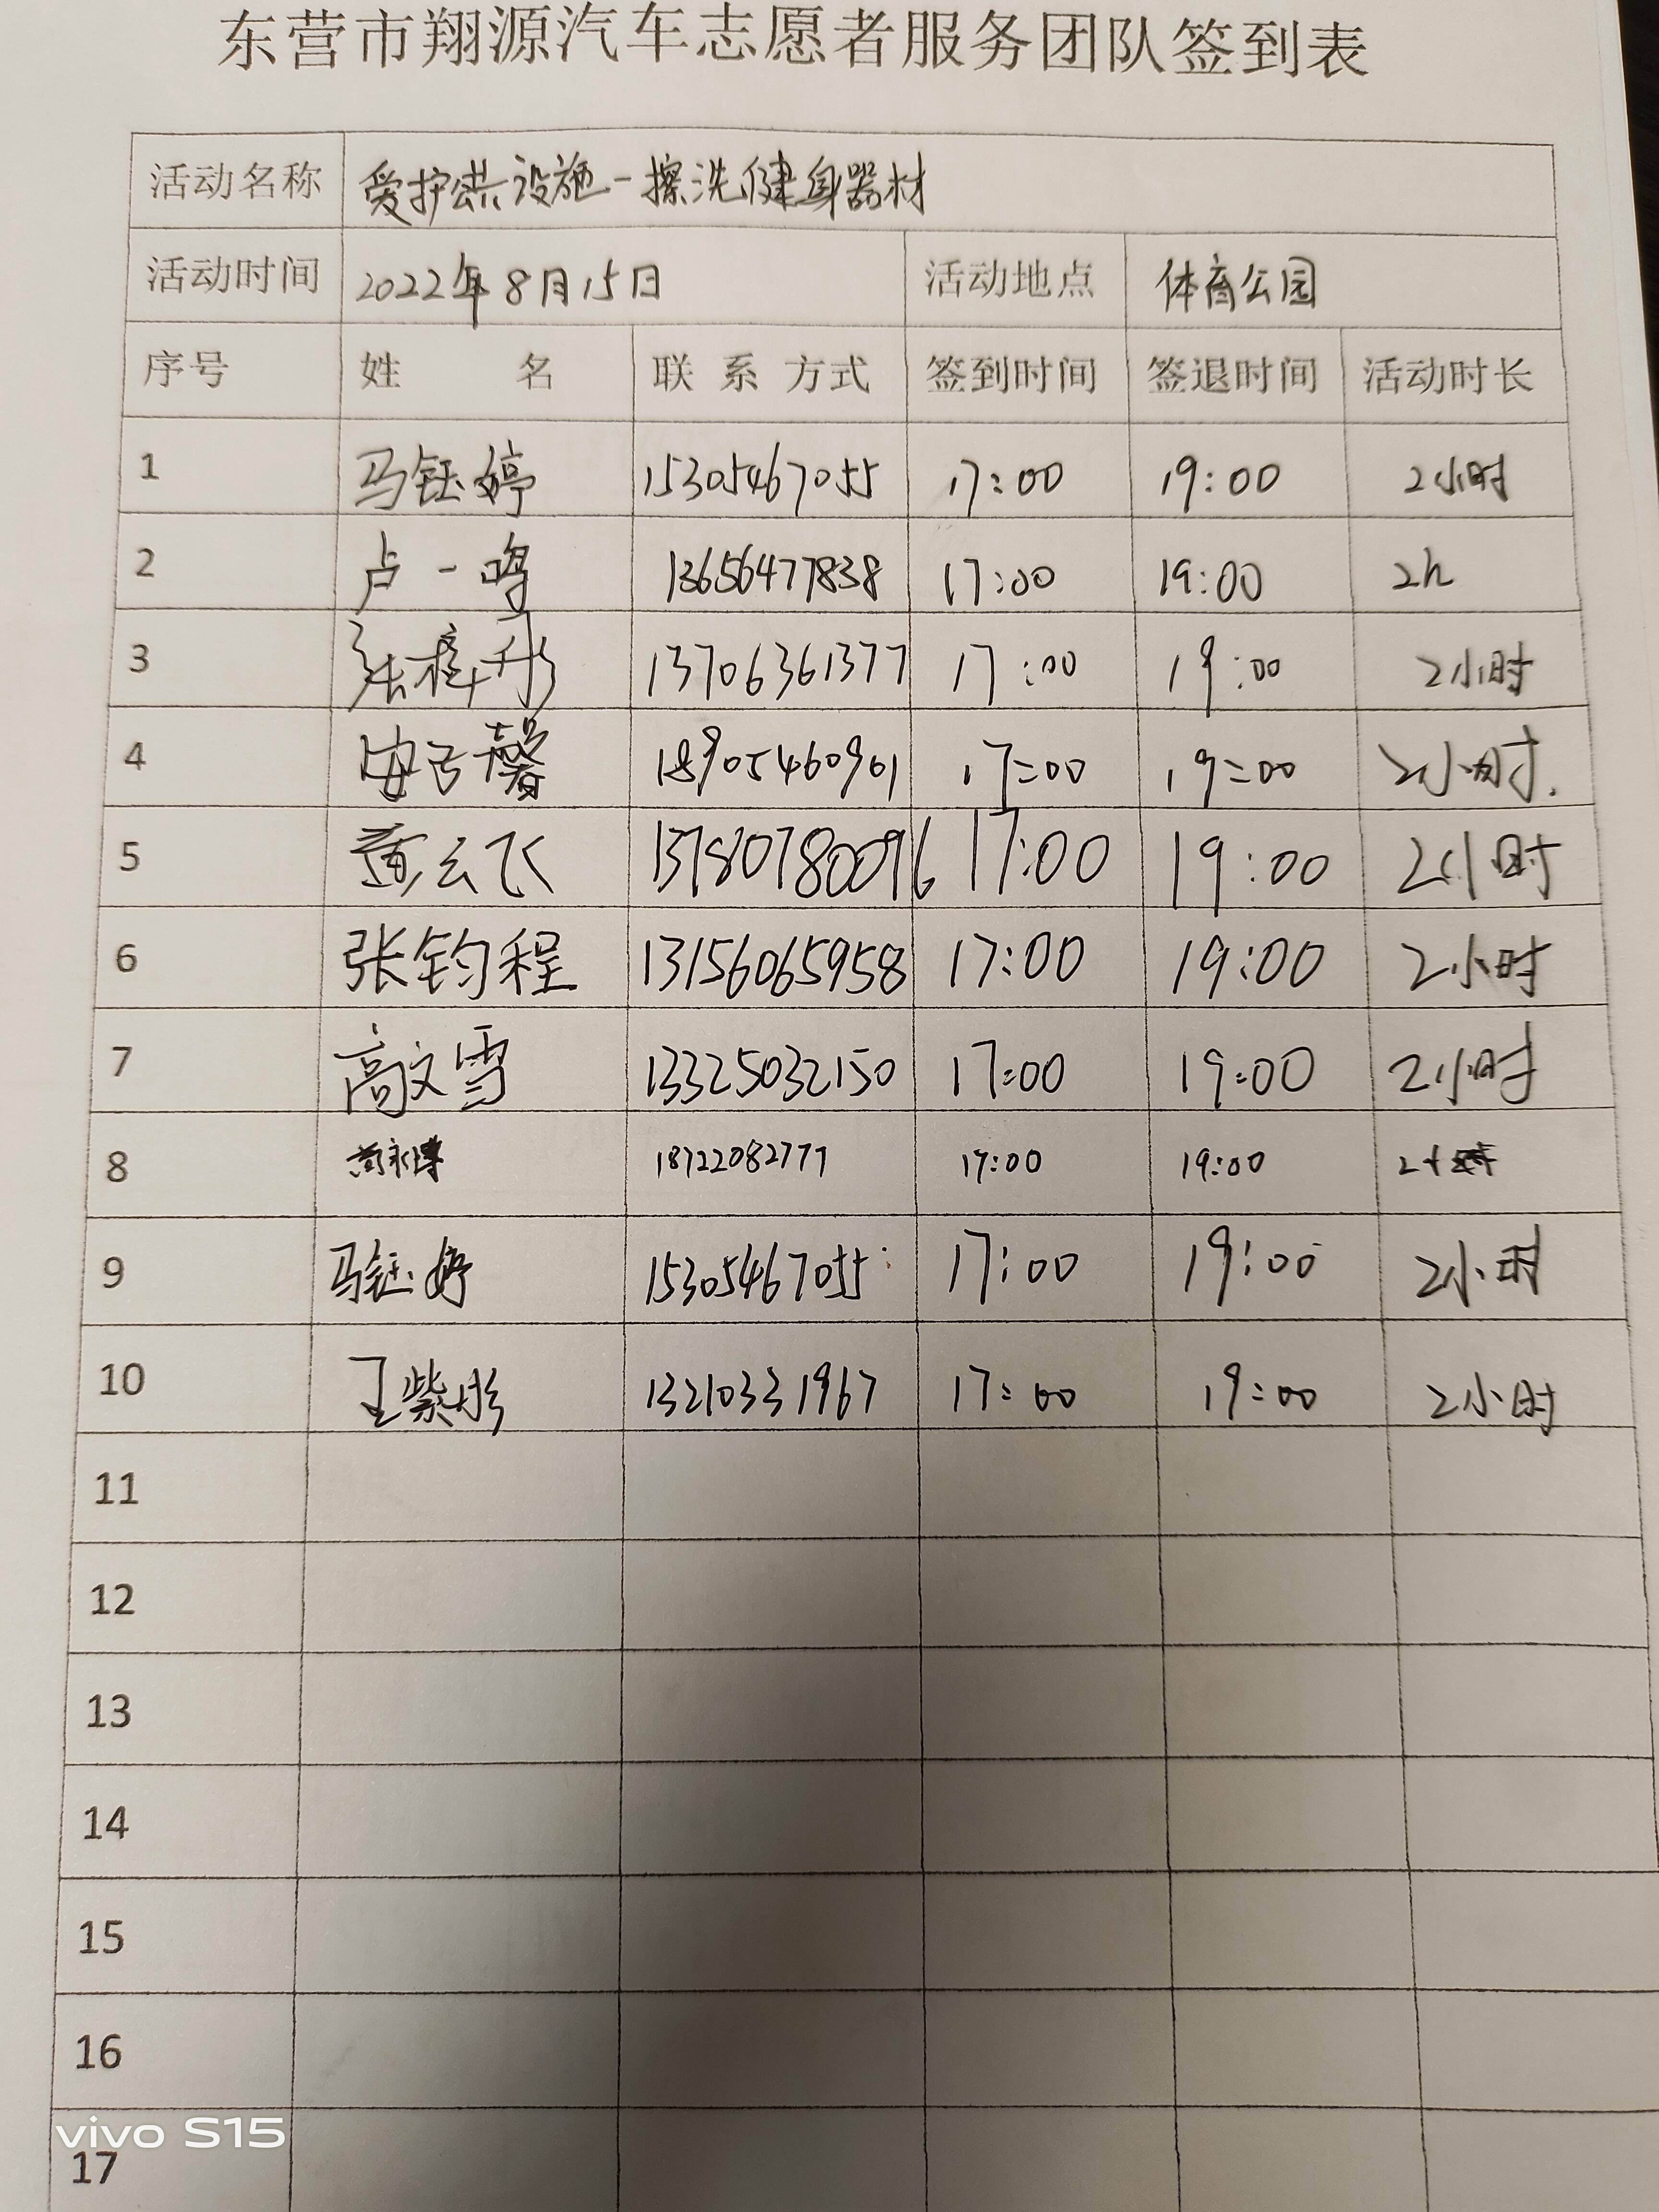 东营市翔源汽车志愿者服务团队签到表
活动名称 爱护公共设施-擦洗健身器材
活动时间 2022年8月15日 活动地点 体育公园
序号 姓 名 联 系 方式 签到时间 签退时间 活动时长
1 马钰婷 15305467055 17:00 19:00 2小时
2 卢一鸣 13656477838 17:00 19:00 2h
3 张梓彤 13706361377 17:00 19:00 2小时
4 安子馨 18905460901 17:00 19:00 2小时.
5 黄云飞 17:00 19:00 2小时
6 张钧程 13156065958 17:00 19:00 2小时
7 高文雪 13325032150 17:00 19:00 2小时
8 18722082777 17:00 19:00
9 马钰婷 15305467055 17:00 19:00 2小时
10 王紫彤 13210331967 17:00 19:00 2小时
11
12
13
14
15
16
vivo S15
17